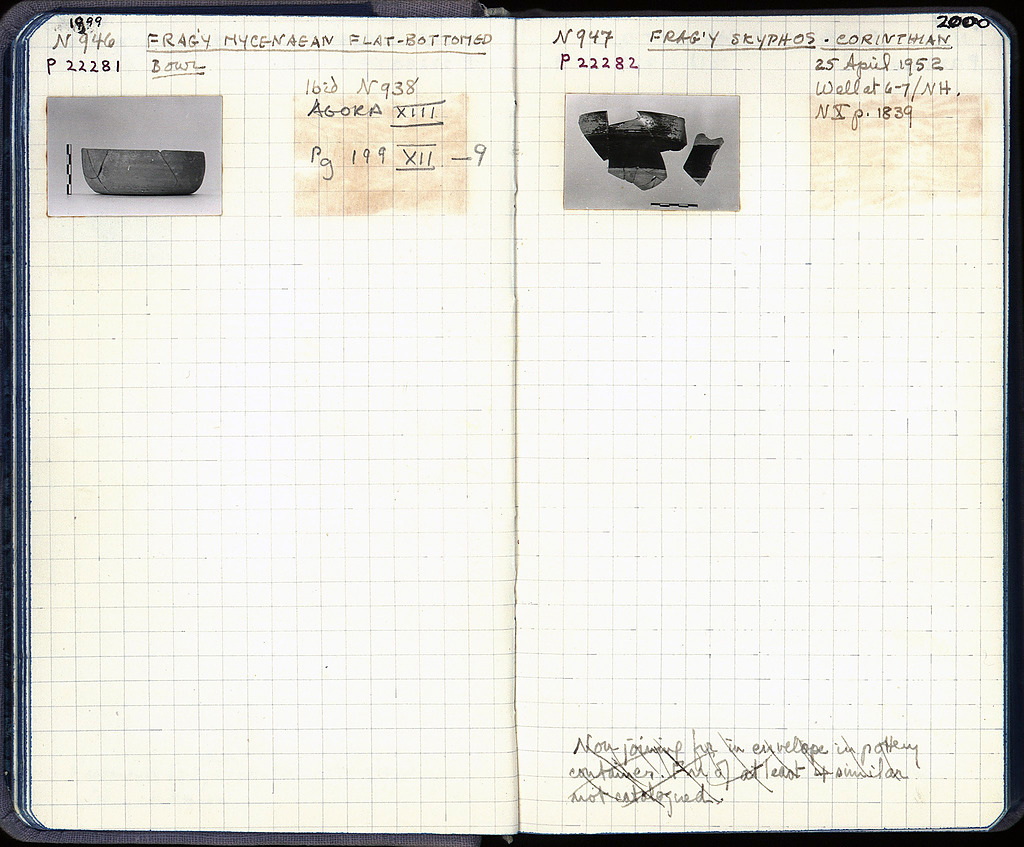 1999
N 946 FRAG'Y MYCENAEAN FLAT-BOTTOMED
P 22281 BOWL
Ibid N 938
AGORA XIII
Pg 199 XII -9
2000
N 947 FRAG'Y SKYPHOS · CORINTHIAN
P 22282
25 April 1952
Well at 6-7/NH.
N X p. 1839
Non-joining frr in envelope in pottery
container. at least 4 similar
not catalogued.